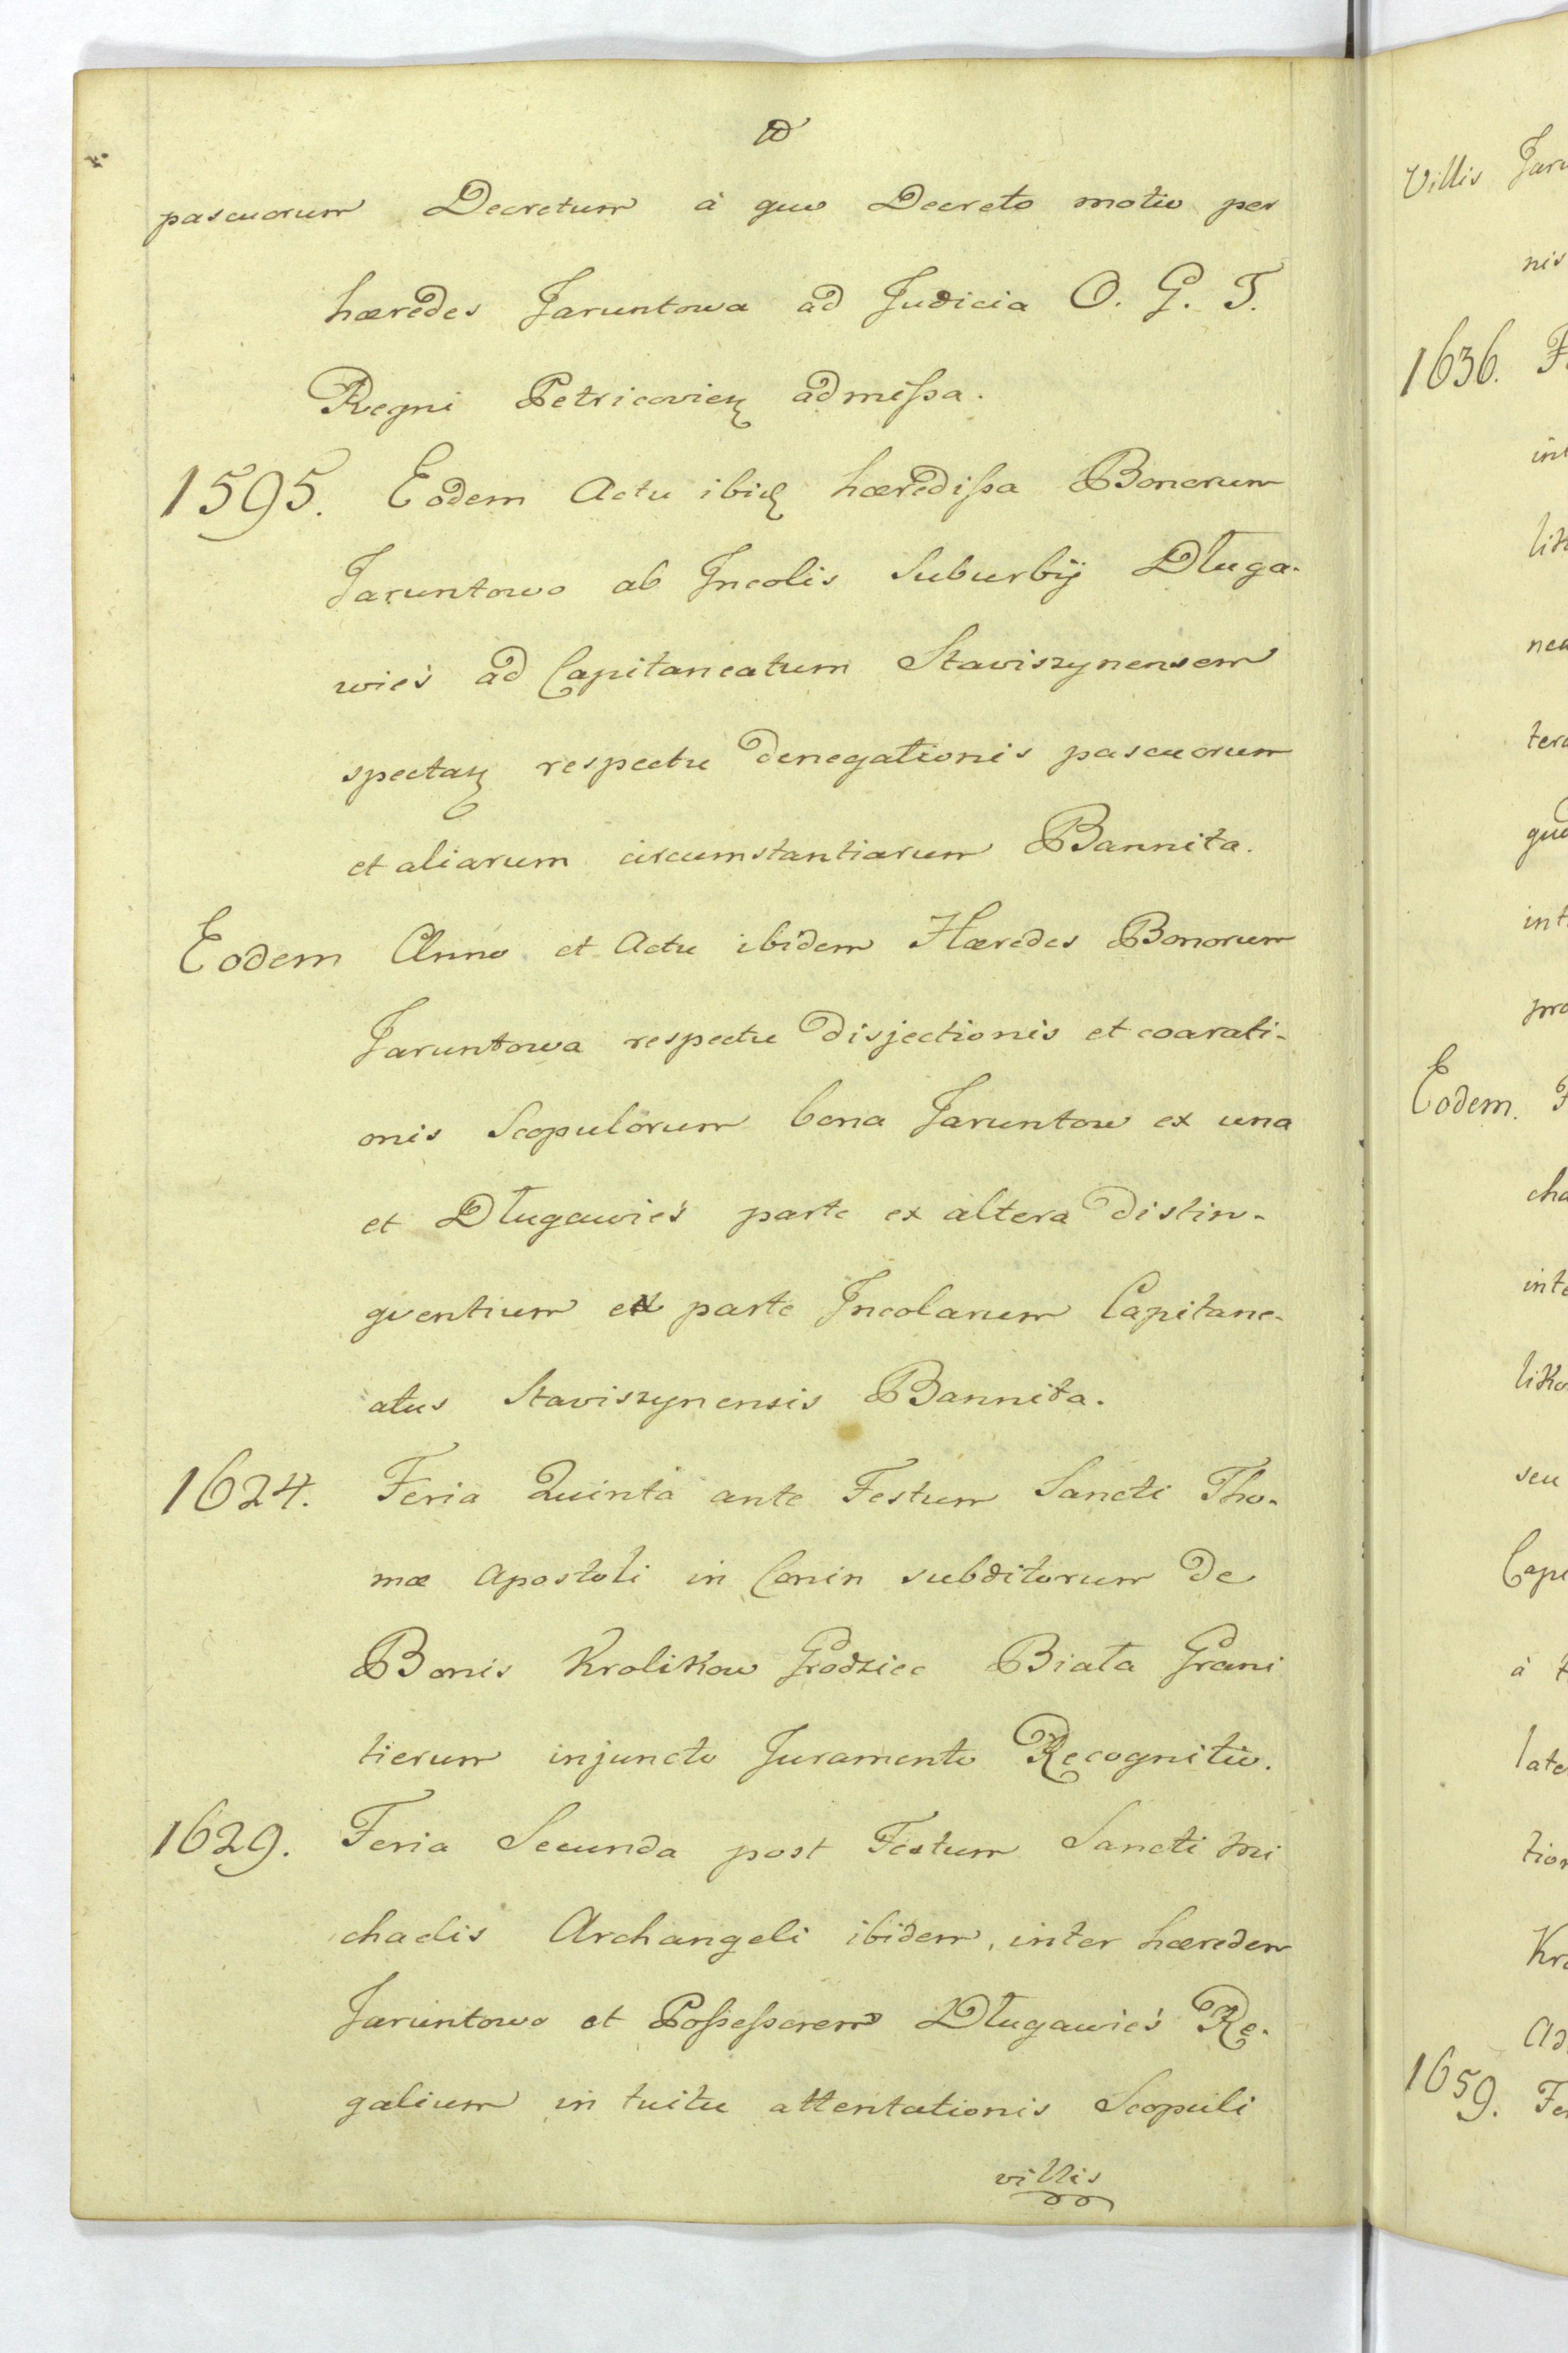 pascuorum Decretum à quo Decreto motio per
hæredes Jaruntowa ad Judicia O. G. T.
Regni Petricovien admißa.
1595. Eodem Actu ibid hæredißa Bonorum
Jaruntowo ab Incolis Suburbij Długa-
wieś ad Capitaneatum Staviszynensem
spectan respectu denegationis pascuorum
et aliarum circumstantiarum Bannita.
Eodem Anno et Actu ibidem Hæredes Bonorum
Jaruntowa respectu disjectionis et coarati-
onis Scopulorum bona Jaruntow ex una
et Długawieś parte ex altera distin-
gventium ex parte Incolarum Capitane-
atus Staviszynensis Bannita.
1624. Feria Quinta ante Festum Sancti Tho-
mæ Apostoli in Conin subditorum de
Bonis Krolikow Grodziec Biała Grani
tierum injuncto Juramento Recognitio.
1629. Feria Secunda post Festum Sancti Mi
chaelis Archangeli ibidem, inter hæredem
Jaruntowo et Poßeßorem Długawieś Re-
galium in tuitu attentationis Scopuli
villis
Villis
nis
1636. F
Eodem.
1659. Fe